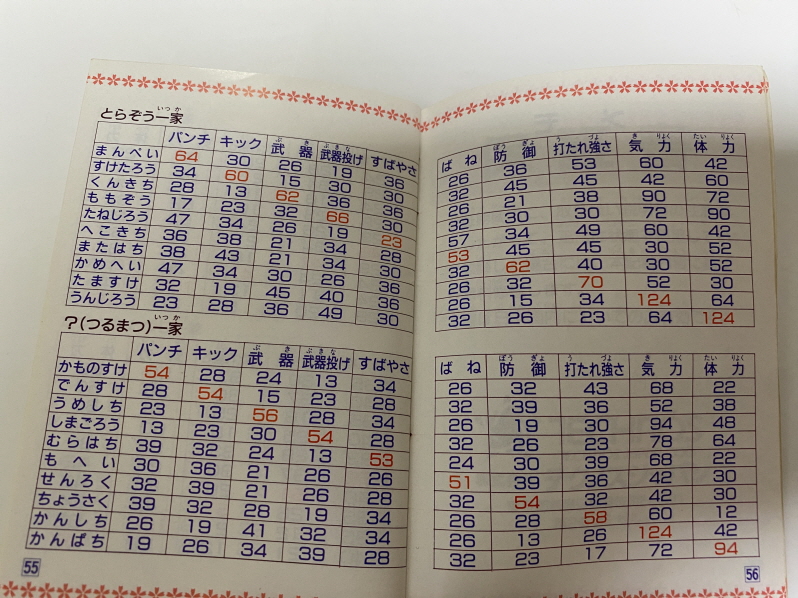 とらぞう一家
いっか
パンチ キック 武器 武器投げ すばやさ
ぶき ぶきな
まんぺい 64 30 26 19 36
すけたろう 34 60 15 30 30
くんきち 28 13 62 36 36
ももぞう 17 23 32 66 30
たねじろう 47 34 26 19 23
へこきち 36 38 21 34 28
またはち 38 43 21 34 30
かめへい 47 34 30 26 36
たますけ 32 19 45 40 36
うんじろう 23 28 36 49 30
?(つるまつ)一家
いっか
パンチ キック 武器 武器投げ すばやさ
ぶき ぶきな
かものすけ 54 28 24 13 34
でんすけ 28 54 15 23 28
うめしち 23 13 56 28 34
しまごろう 13 23 30 54 28
むらはち 39 32 24 13 53
もへい 30 36 21 26 26
せんろく 32 39 21 26 28
ちょうさく 39 32 28 19 34
かんしち 26 19 41 32 34
かんぱち 19 26 34 39 28
55
ばね 防御 打たれ強さ 気力 体力
ぼうぎょ うづよ きりょく たいりょく
26 36 53 60 42
32 45 45 42 60
26 21 38 90 72
32 30 30 72 90
57 34 49 60 42
53 45 45 30 52
32 62 40 30 52
26 32 70 52 30
26 15 34 124 64
32 26 23 64 124
ばね 防御 打たれ強さ 気力 体力
ぼうぎょ うづよ きりょく たいりょく
26 32 43 68 22
32 39 36 52 38
26 19 30 94 48
32 26 23 78 64
24 30 39 68 22
51 39 36 42 30
32 54 32 42 30
26 28 58 60 12
26 13 26 124 42
32 23 17 72 94
56